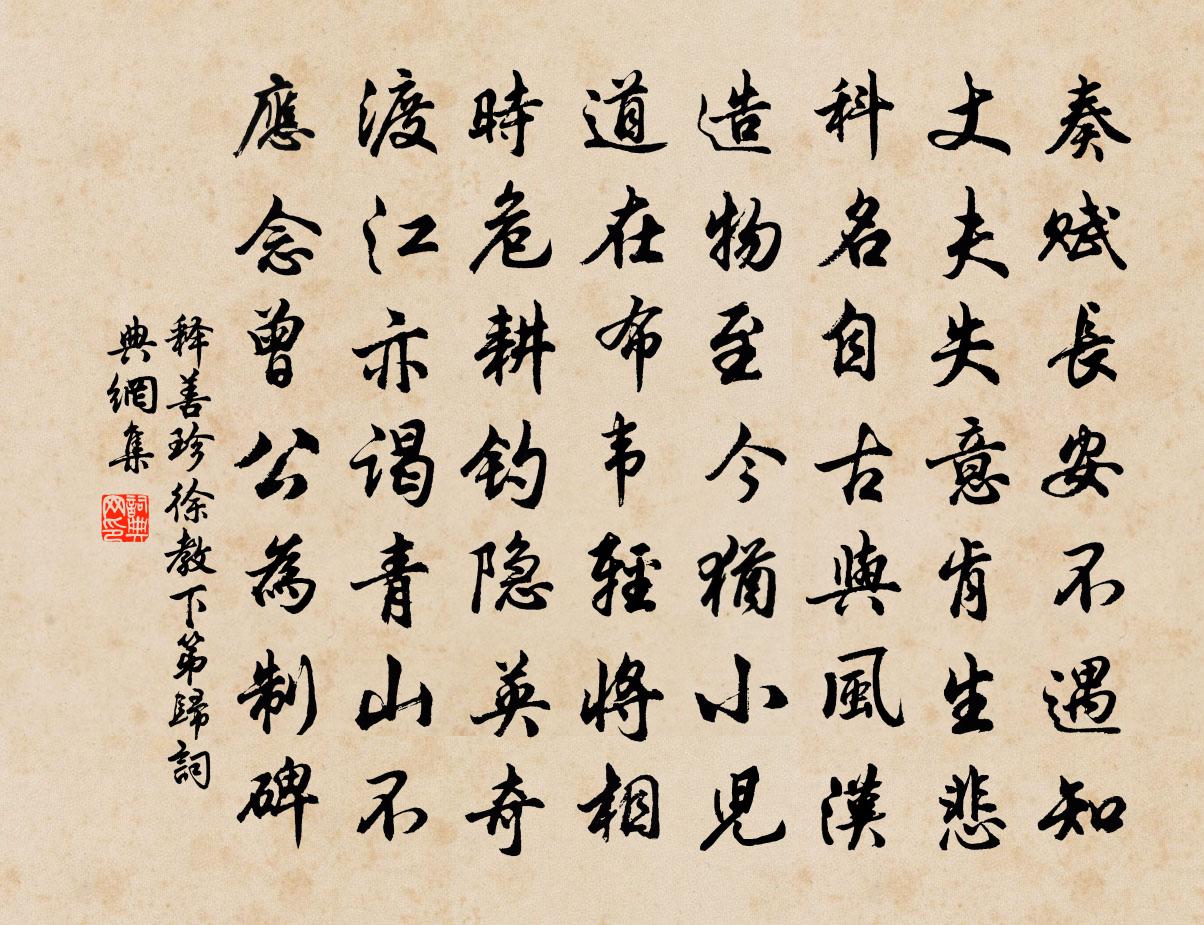 奏賦長安不遇知
丈夫失意肯生悲
科名自古與風漢
造物至今猶小児
道在布韦輕將相
時危耕钓隐英奇
渡江亦谒青山不
應念曾公為制碑
释善珍徐教下第歸詞
典網集
詞典
网印